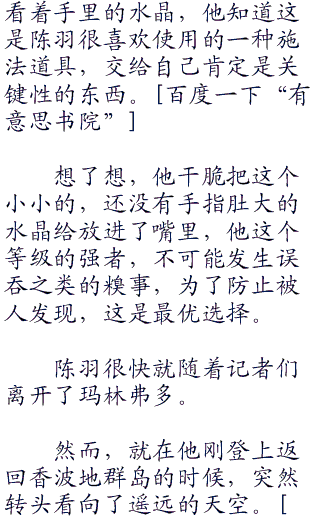 看着手里的水晶，他知道这
是陈羽很喜欢使用的一种施
法道具，交给自己肯定是关
键性的东西。[百度一下“有
意思书院”]
想了想，他干脆把这个
小小的，还没有手指肚大的
水晶给放进了嘴里，他这个
等级的强者，不可能发生误
吞之类的糗事，为了防止被
人发现，这是最优选择。
陈羽很快就随着记者们
离开了玛林弗多。
然而，就在他刚登上返
回香波地群岛的时候，突然
转头看向了遥远的天空。[